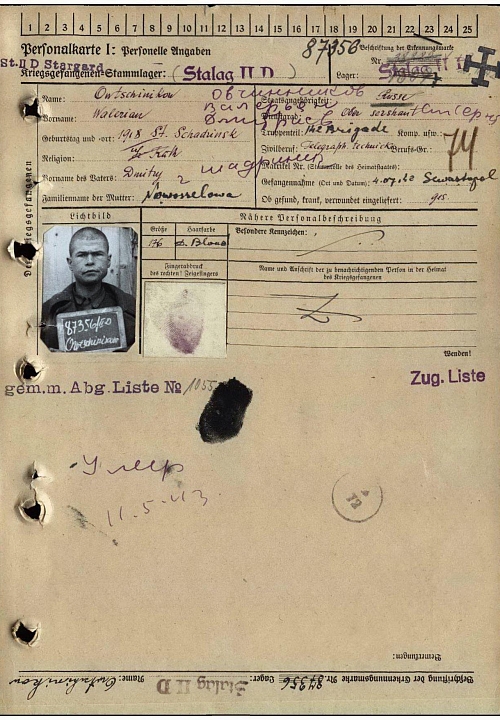 1 2 3 4 5 6 7 8 9 10 11 12 13 14 15 16 17 18 19 20 21 22 23 24 25
Personalkarte I: Personelle Angaben
87356 Beschriftung der Erkennungsmarke
St. II D Stargard Nr.
Kriegsgefangenen-Stammlager: Stalag II D Lager: Stalag II
Овчинников
Name: Owtschinikow Staatsangehörigkeit: Russe
Валерьян
Vorname: Walerian Dienstgrad: Ober sershant
Truppenteil: Brigade Komp. usw.:
Geburtstag und -ort: 1918 Schadrinsk
Zivilberuf: Telegraph technicker Berufs-Gr.: 74
г Шадринск
Religion:
Matrikel Nr. (Stammrolle des Heimatstaates):
Vorname des Vaters: Dmitry
Gefangennahme (Ort und Datum): 4.07.42 Sewastopol
Familienname der Mutter: Nowosselowa
Ob gesund, krank, verwundet eingeliefert: ges.
Lichtbild
Nähere Personalbeschreibung
Größe Haarfarbe
Besondere Kennzeichen:
176 d. Blond
Fingerabdruck
des rechten! Zeigefingers
Name und Anschrift der zu benachrichtigenden Person in der Heimat
des Kriegsgefangenen
87356 II D
Owtschinikow
Wenden!
gem. m. Abg. Liste №
Zug. Liste
Умер
11.5.43
72
Bemerkungen:
Beschriftung der Erkennungsmarke Nr. 87356 Lager: Stalag II D Name: Owtschinikow